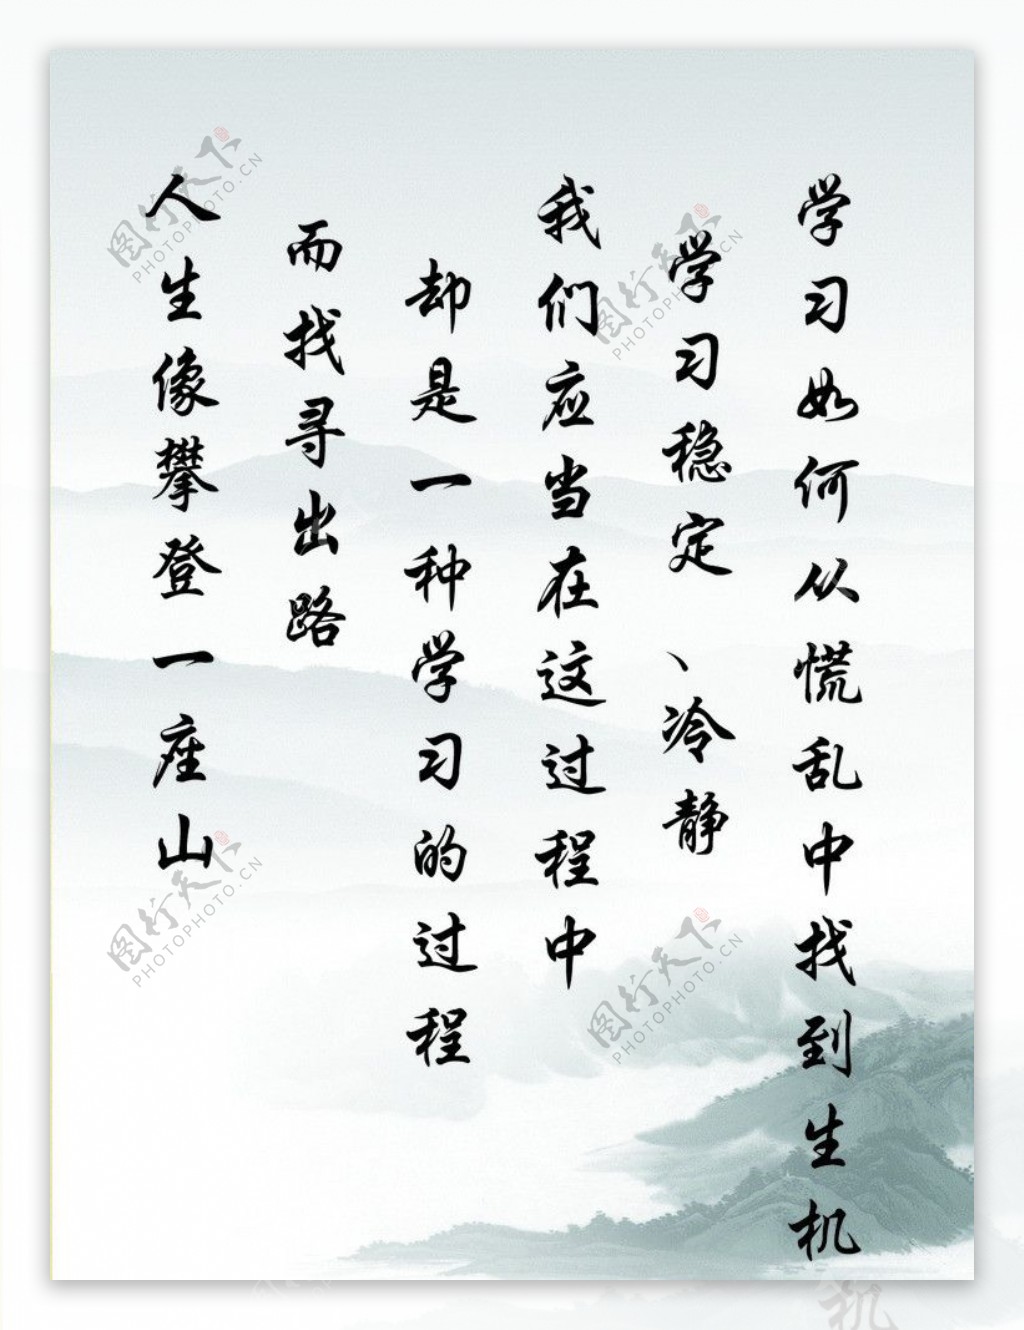 人生像攀登一座山
而找寻出路
却是一种学习的过程
我们应当在这过程中
学习稳定、冷静
学习如何从慌乱中找到生机
图行天下
PHOTOPHOTO.CN
图行天下
PHOTOPHOTO.CN
图行天下
PHOTOPHOTO.CN
图行天下
PHOTOPHOTO.CN